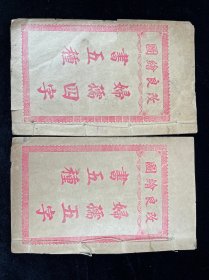 改良繪圖
婦孺四字
書五種
改良繪圖
婦孺五字
書五種